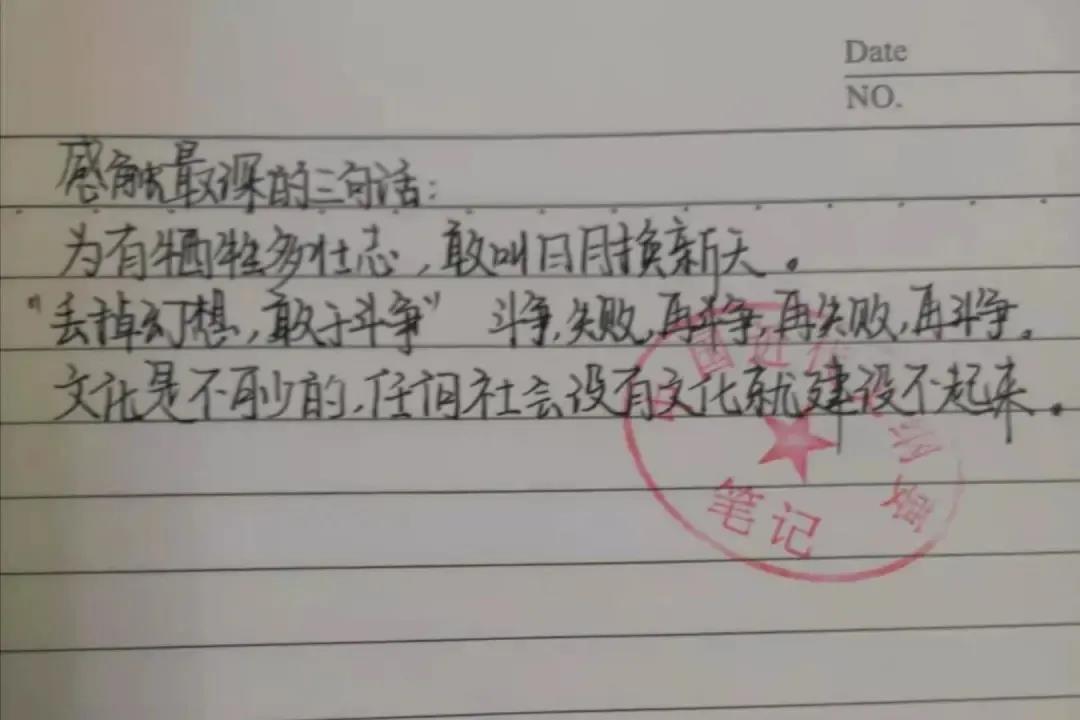 Date
NO.
感触最深的三句话:
为有牺牲多壮志,敢叫日月换新天。
“丢掉幻想,敢于斗争” 斗争,失败,再斗争,再失败,再斗争。
文化是不可少的,任何社会没有文化就建设不起来。
国近代
笔记